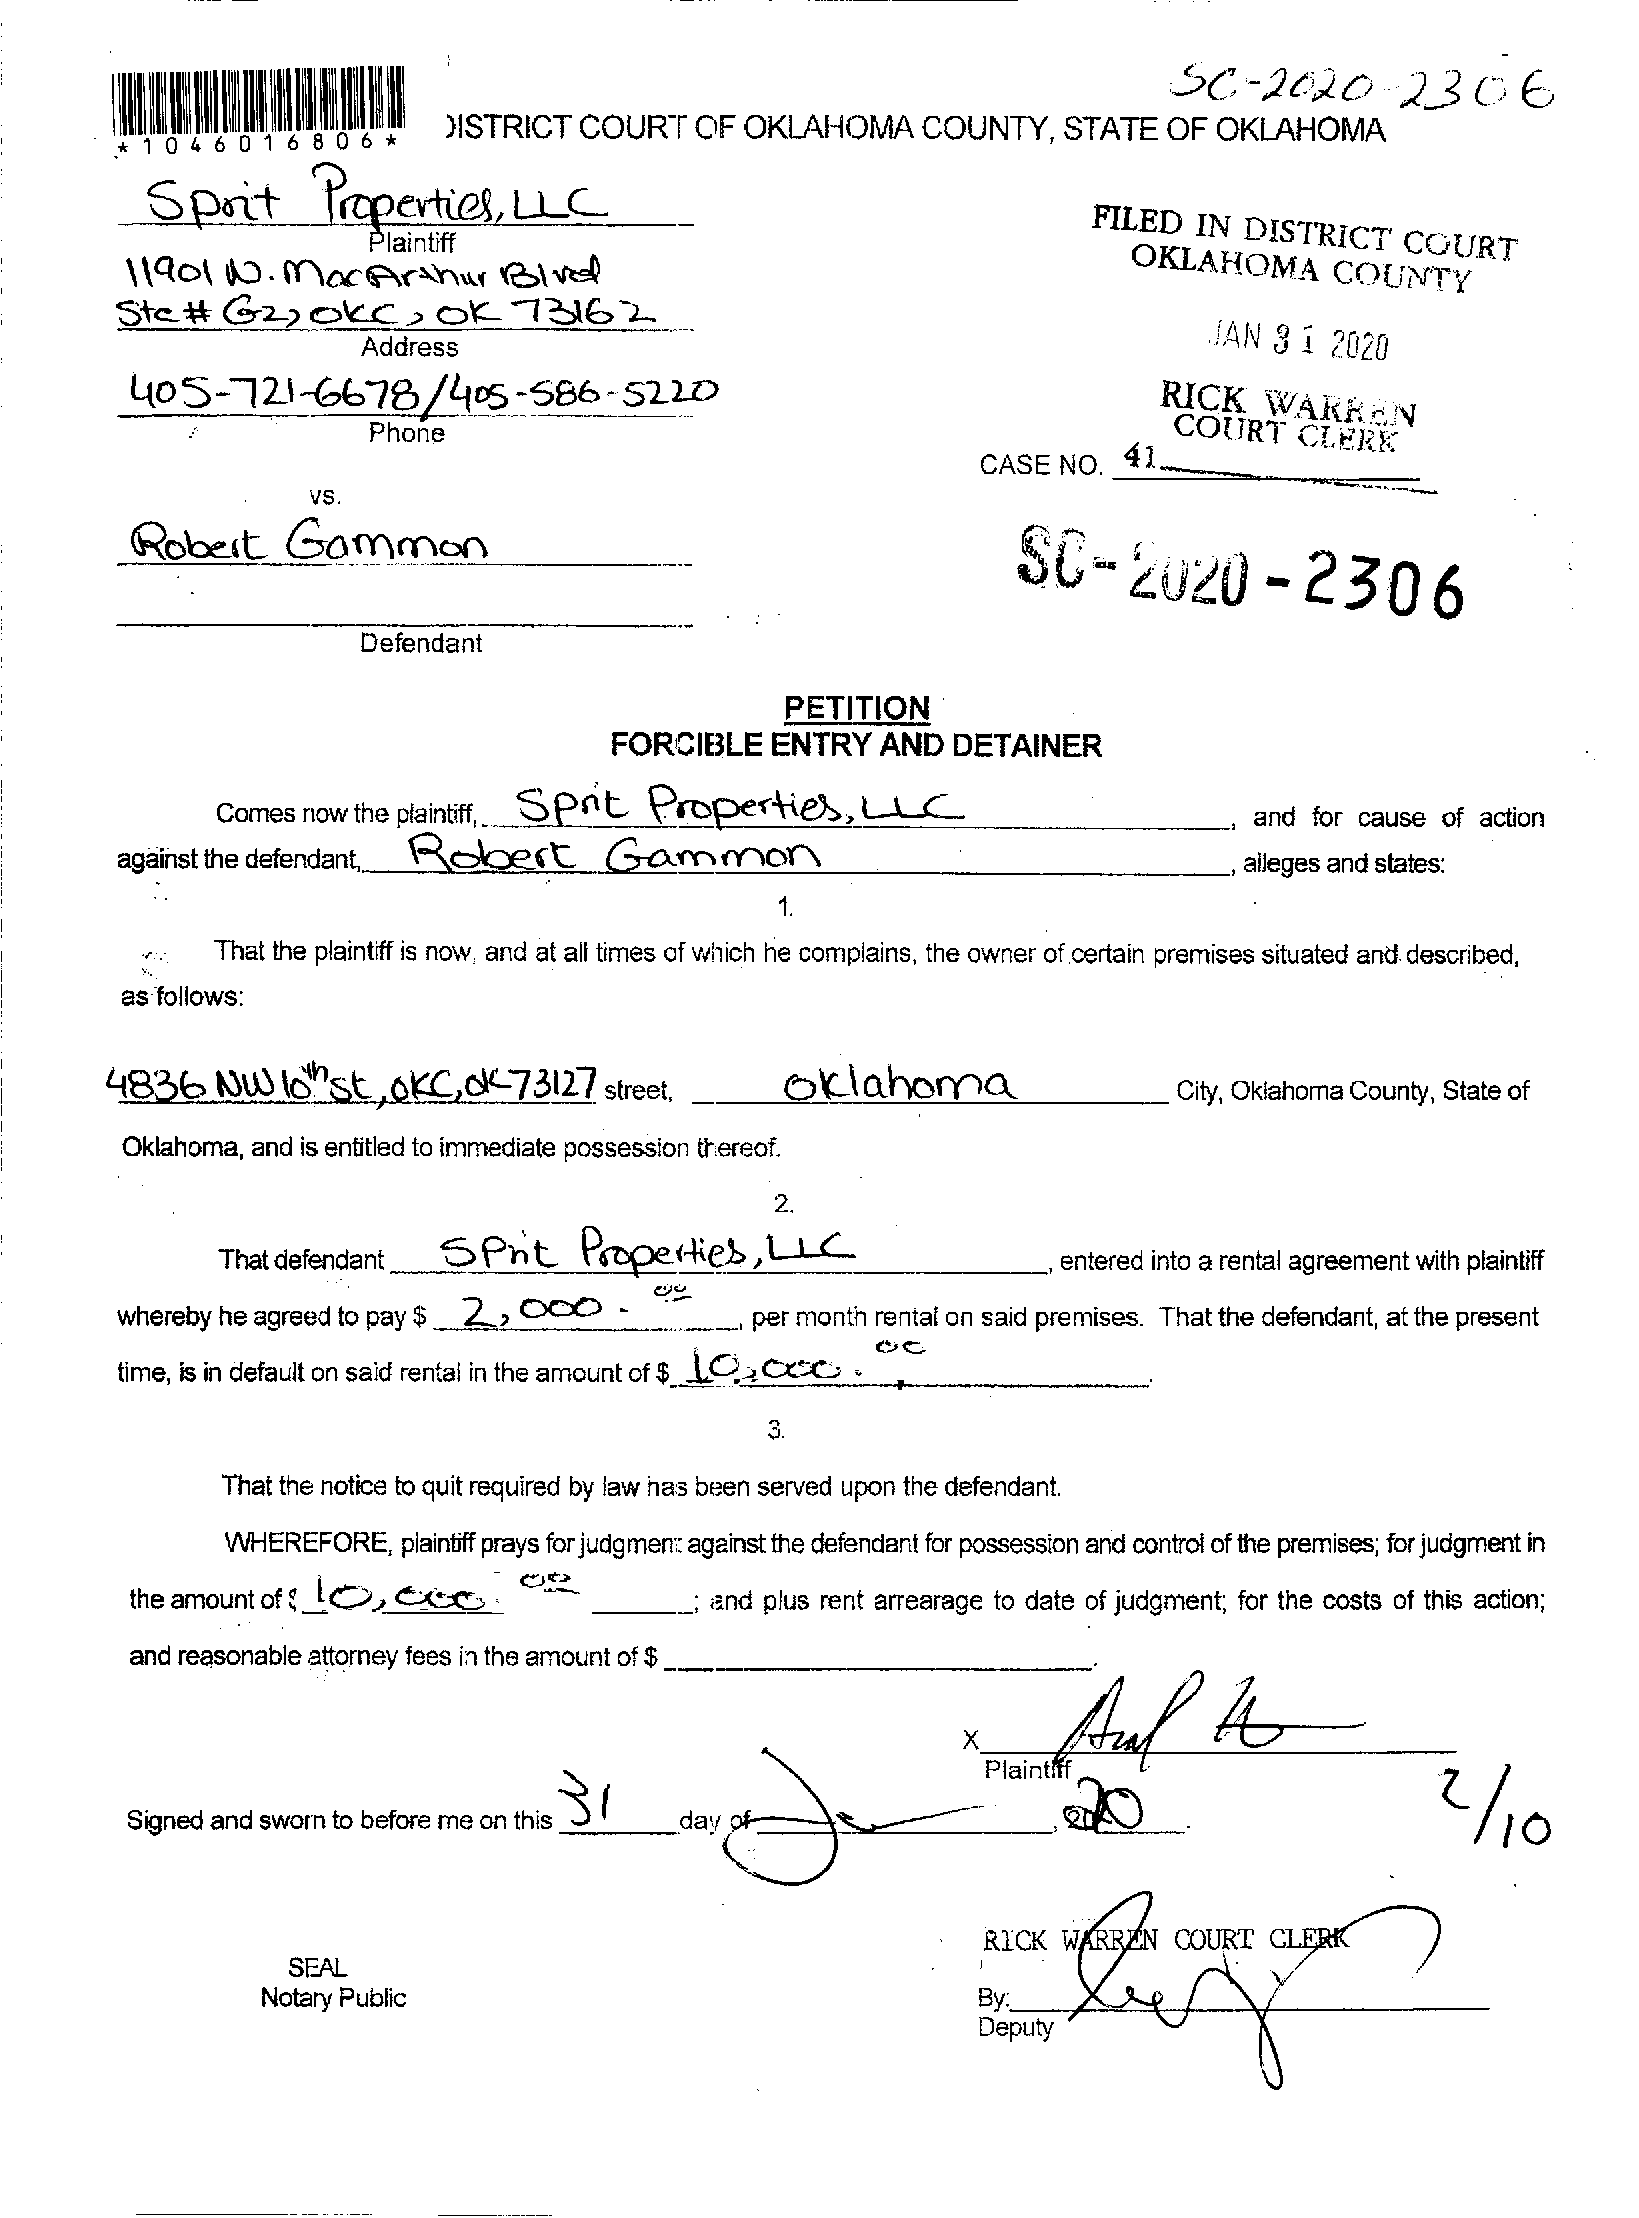 SC-2020-2306
*1046016806*
DISTRICT COURT OF OKLAHOMA COUNTY, STATE OF OKLAHOMA
Sprit Properties, LLC
Plaintiff
11901 N. MacArthur Blvd
Ste # G2, OKC, OK 73162
Address
405-721-6678/405-586-5220
Phone
FILED IN DISTRICT COURT
OKLAHOMA COUNTY
JAN 31 2020
RICK WARREN
COURT CLERK
CASE NO. 41
vs.
Robert Gammon
SC-2020-2306
Defendant
PETITION
FORCIBLE ENTRY AND DETAINER
Comes now the plaintiff, Sprit Properties, LLC, and for cause of action
against the defendant, Robert Gammon, alleges and states:
1.
That the plaintiff is now, and at all times of which he complains, the owner of certain premises situated and described,
as follows:
4836 NW 10th St, OKC, OK-73127 street, Oklahoma City, Oklahoma County, State of
Oklahoma, and is entitled to immediate possession thereof.
2.
That defendant Sprit Properties, LLC, entered into a rental agreement with plaintiff
whereby he agreed to pay $ 2,000.00, per month rental on said premises. That the defendant, at the present
time, is in default on said rental in the amount of $ 10,000.00.
3.
That the notice to quit required by law has been served upon the defendant.
WHEREFORE, plaintiff prays for judgment against the defendant for possession and control of the premises; for judgment in
the amount of $ 10,000.00; and plus rent arrearage to date of judgment; for the costs of this action;
and reasonable attorney fees in the amount of $
X
Plaintiff
2/10
Signed and sworn to before me on this 31 day of Jan, 2020.
RICK WARREN COURT CLERK
SEAL
Notary Public
By:
Deputy